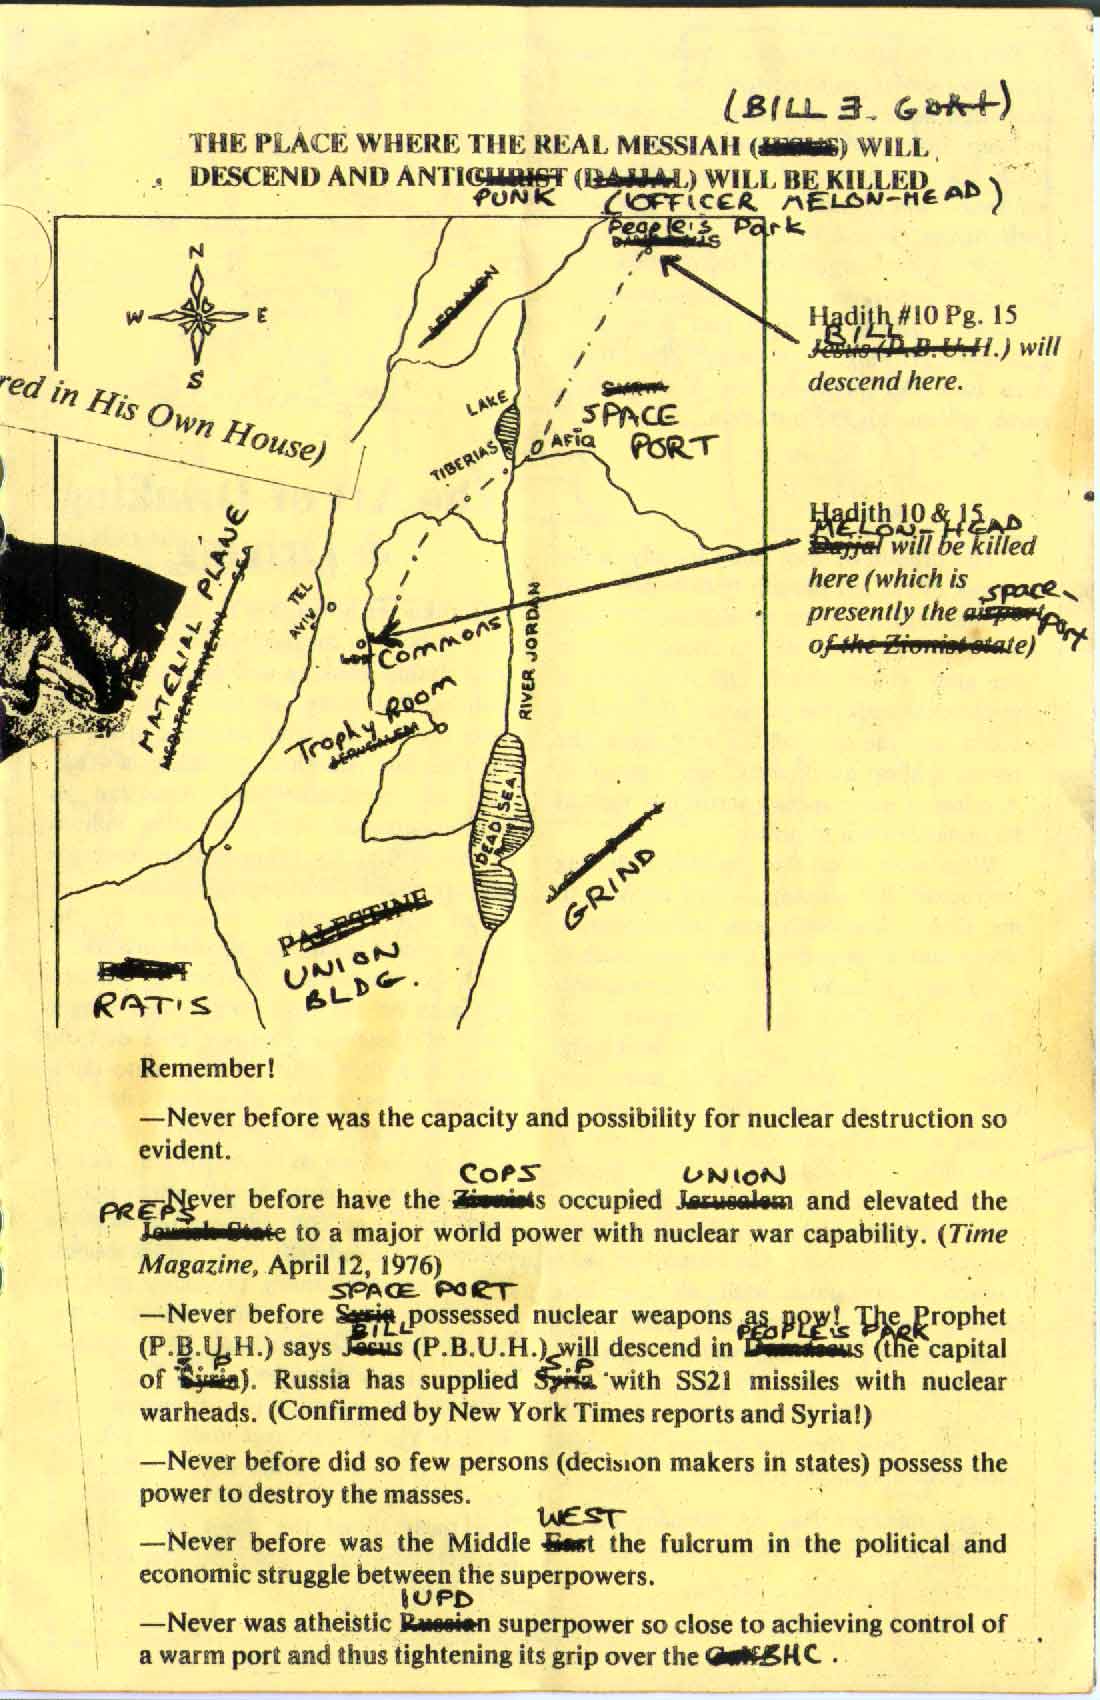 (BILL E. GOAT)
THE PLACE WHERE THE REAL MESSIAH (JESUS) WILL
DESCEND AND ANTICHRIST (DAJJAL) WILL BE KILLED
PUNK (OFFICER MELON-HEAD)
People's Park
N
W E
S
LEBANON
red in His Own House)
Hadith #10 Pg. 15
BILL
Jesus (P.B.U.H.) will
descend here.
LAKE
TIBERIAS
AFIQ
SYRIA
SPACE
PORT
Hadith 10 & 15
MELON-HEAD
Dajjal will be killed
here (which is
space-
presently the airport
port
of the Zionist state)
MATERIAL PLANE
MEDITERRANEAN SEA
TEL
AVIV
Commons
RIVER JORDAN
Trophy Room
JERUSALEM
DEAD SEA
JORDAN
GRIND
PALESTINE
UNION
BLDG.
EGYPT
RATIS
Remember!
—Never before was the capacity and possibility for nuclear destruction so
evident.
COPS UNION
—Never before have the Zionists occupied Jerusalem and elevated the
PREPS
Jewish State to a major world power with nuclear war capability. (Time
Magazine, April 12, 1976)
SPACE PORT
—Never before Syria possessed nuclear weapons as now! The Prophet
BILL PEOPLE'S PARK
(P.B.U.H.) says Jesus (P.B.U.H.) will descend in Damascus (the capital
S.P S.P
of Syria). Russia has supplied Syria with SS21 missiles with nuclear
warheads. (Confirmed by New York Times reports and Syria!)
—Never before did so few persons (decision makers in states) possess the
power to destroy the masses.
WEST
—Never before was the Middle East the fulcrum in the political and
economic struggle between the superpowers.
IUPD
—Never was atheistic Russian superpower so close to achieving control of
a warm port and thus tightening its grip over the Gulf BHC.